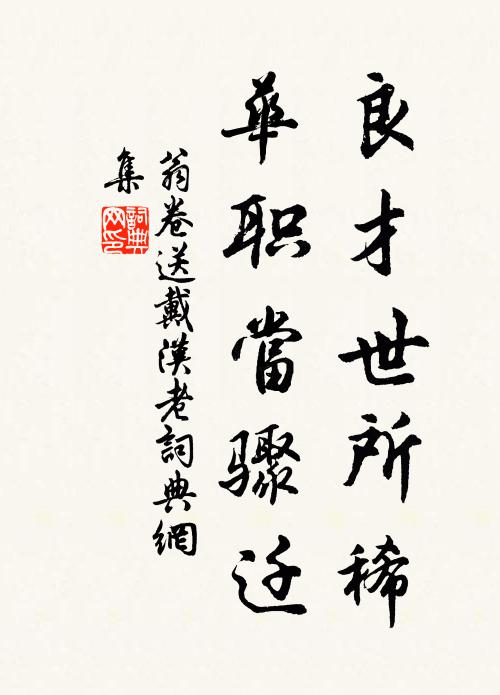 良才世所稀
華职當骤迁
翁卷送戴漢老詞典網
集
詞典网印